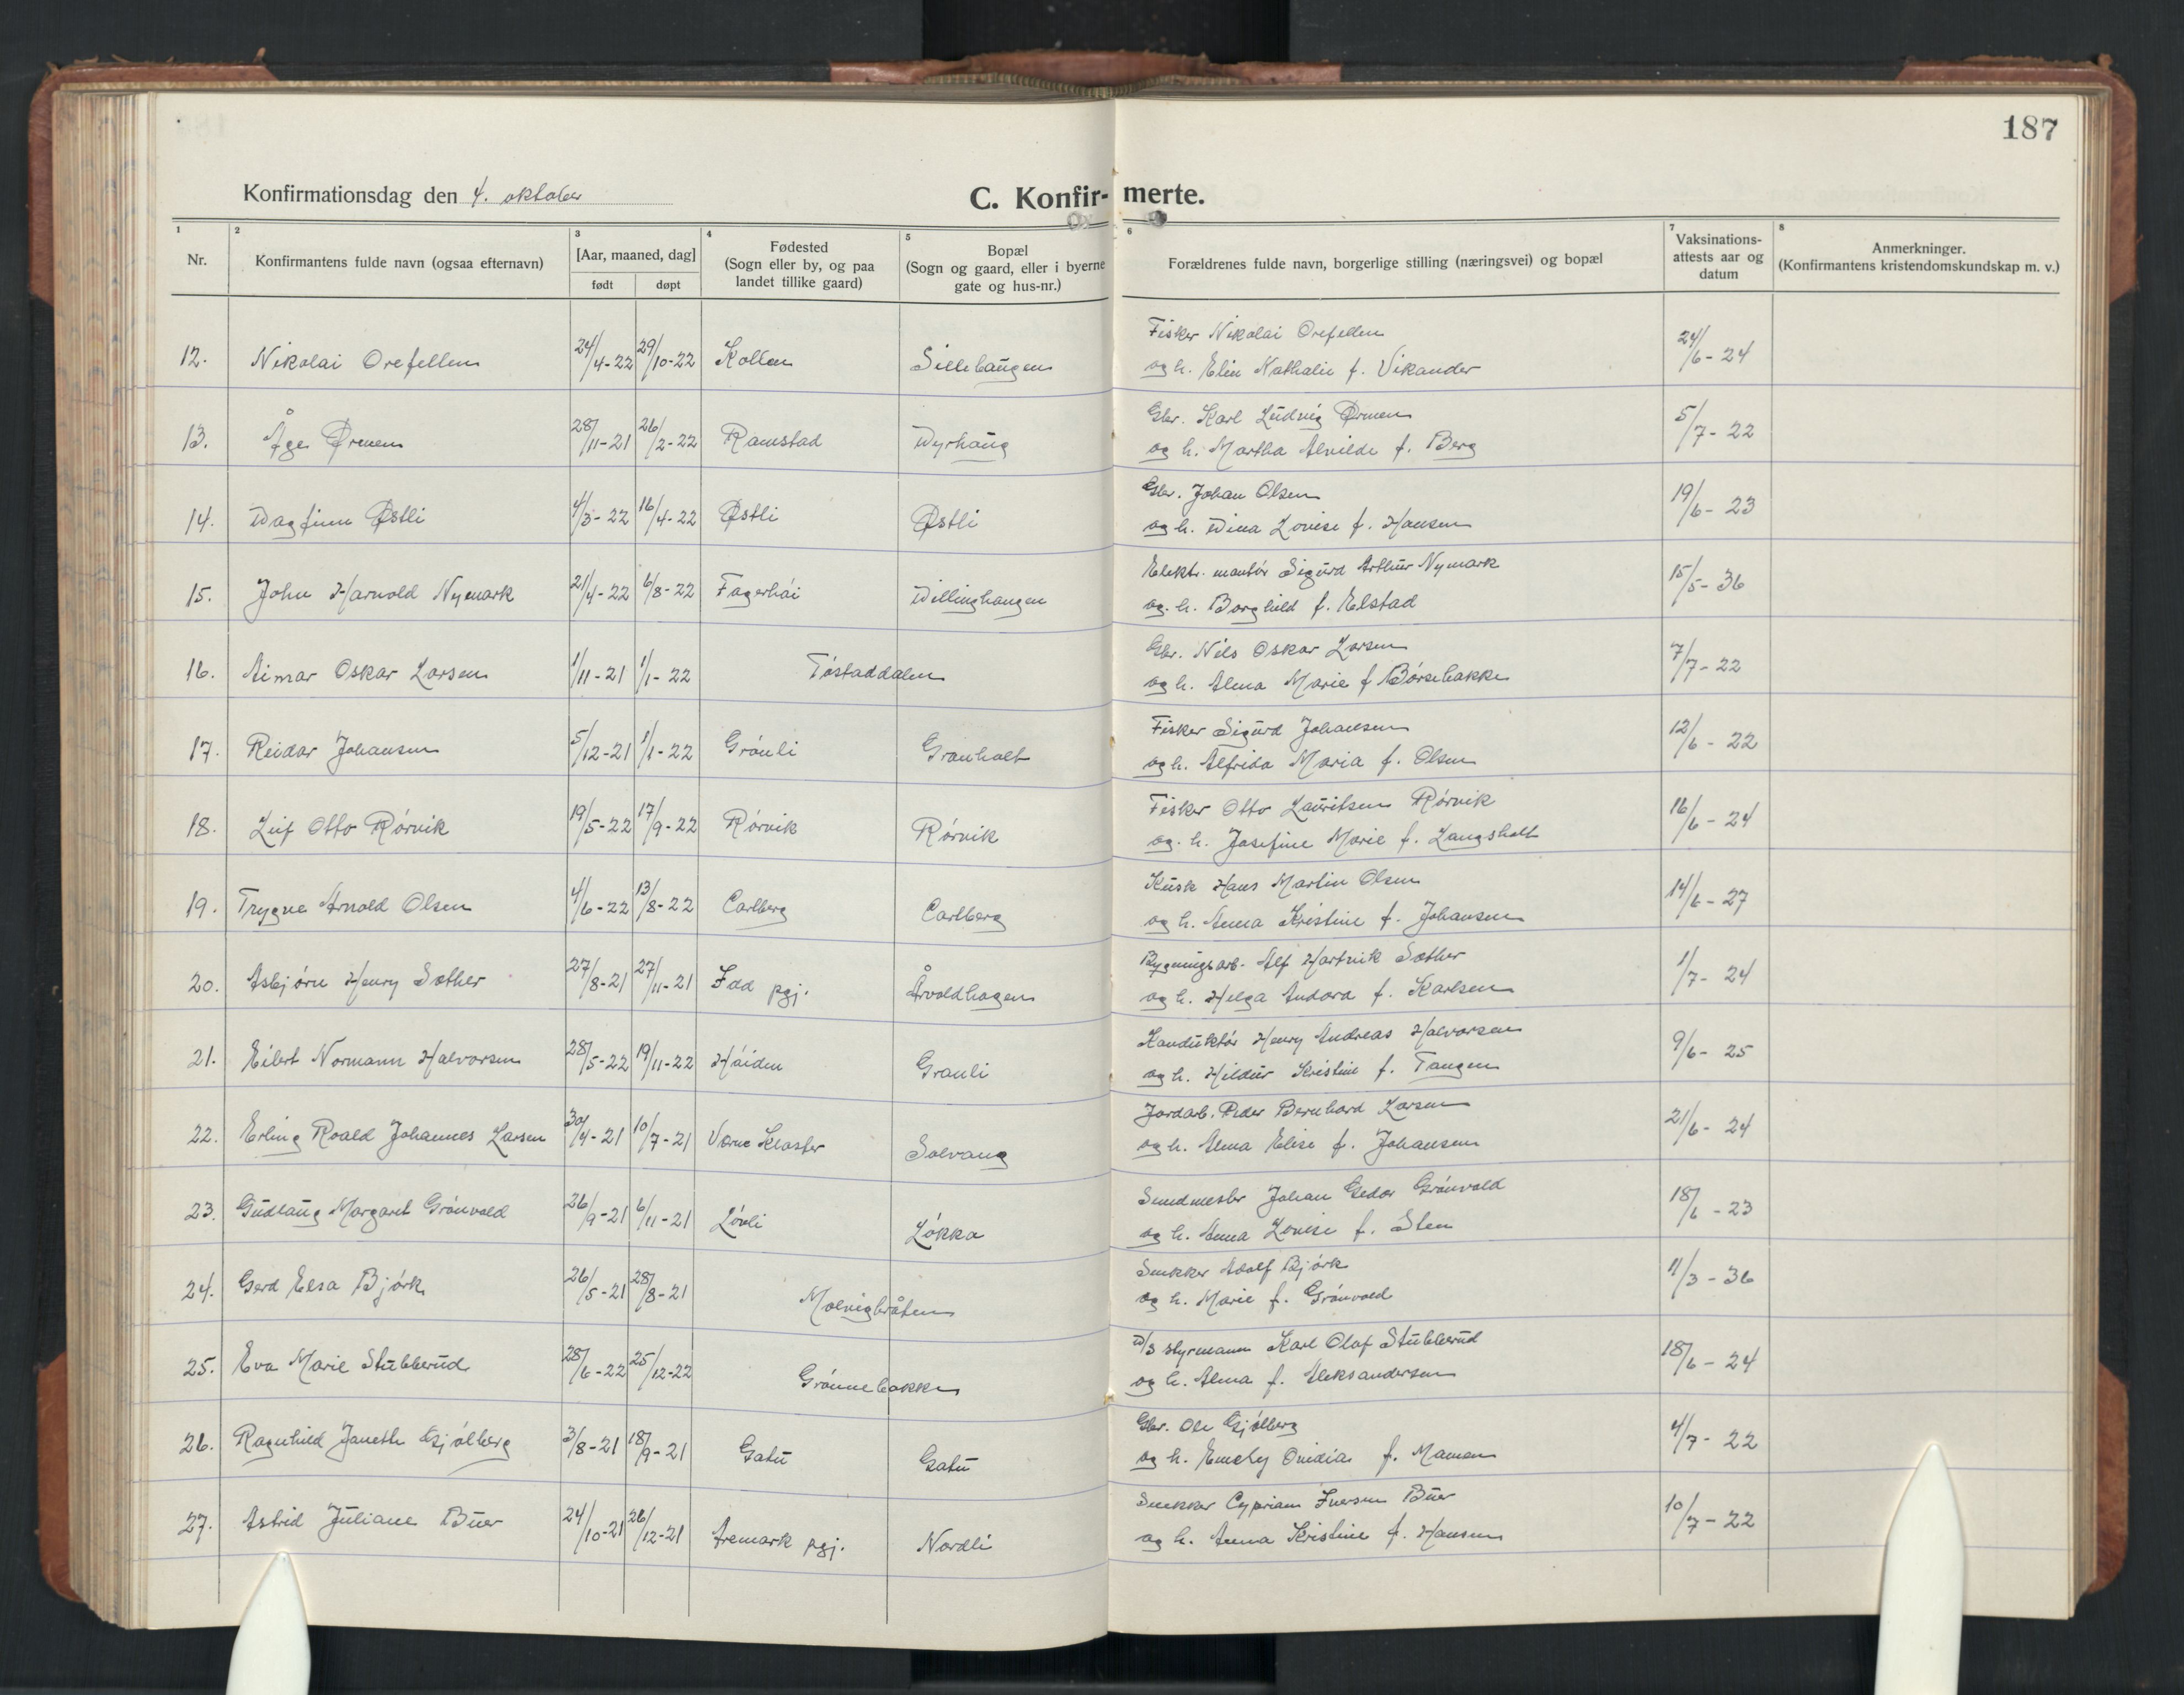 187
Konfirmationsdag den 4. oktober
C. Konfir- merte.
1 2 3 4 5 6 7 8
Nr.
Konfirmantens fulde navn (ogsaa efternavn)
[Aar, maaned, dag]
født døpt
Fødested
(Sogn eller by, og paa
landet tillike gaard)
Bopæl
(Sogn og gaard, eller i byerne
gate og hus-nr.)
Forældrenes fulde navn, borgerlige stilling (næringsvei) og bopæl
Vaksinations-
attests aar og
datum
Anmerkninger.
(Konfirmantens kristendomskundskap m. v.)
12. Nikolai Orefellen 24/4-22 29/10-22 Kollen Sillebaugen Fisker Nikolai Orefellen
og h. Elin Nathalie f. Vikander 24/6-24
13. Åge Ørmen 28/11-21 26/2-22 Ramstad Dyrhaug Gbr. Karl Ludvig Ørmen
og h. Martha Alvilde f. Berg 5/7-22
14. Dagfinn Østli 4/3-22 16/4-22 Østli Østli Gbr. Johan Olsen
og h. Dina Lovise f. Hansen 19/6-23
15. John Harvold Nymark 21/4-22 6/8-22 Fagerhöi Dillinghaugen Elektr. montör Sigurd Arthur Nymark
og h. Borghild f. Elstad 15/5-36
16. Aimar Oskar Larsen 1/11-21 1/1-22 Töstaddalen Gbr. Nils Oskar Larsen
og h. Alma Marie f. Börsebakke 7/7-22
17. Reidar Johansen 5/12-21 1/1-22 Grönli Granholt Fisker Sigurd Johansen
og h. Alfrida Maria f. Olsen 12/6-22
18. Leif Otto Rörvik 19/5-22 17/9-22 Rörvik Rörvik Fisker Otto Lauritsen Rörvik
og h. Josefine Marie f. Langsholt 16/6-24
19. Trygve Arnold Olsen 4/6-22 13/8-22 Carlberg Carlberg Kusk Hans Martin Olsen
og h. Anna Kristine f. Johansen 14/6-27
20. Asbjörn Henry Sæther 27/8-21 27/11-21 Idd pgj. Årvoldhagen Bygningsarb. Alf Hartvik Sæther
og h. Helga Andora f. Karlsen 1/7-24
21. Eilert Normann Halvorsen 28/5-22 19/11-22 Höiden Granli Konduktör Henry Andreas Halvorsen
og h. Hildur Kristine f. Tangen 9/6-25
22. Erling Roald Johannes Larsen 30/4-21 10/7-21 Værne Kloster Solvang Jordarb. Peder Bernhard Larsen
og h. Alma Elise f. Johansen 21/6-24
23. Gudlaug Margaret Grönvold 26/9-21 6/11-21 Lövli Lökka Johan Grönvold
og h. Anna Lovise f. Sten 18/6-23
24. Gerd Elsa Björk 26/5-21 28/8-21 Molvigbråten Snekker Adolf Björk
og h. Marie f. Grönvold 11/3-36
25. Eva Marie Stubberud 28/6-22 25/12-22 Grönnebakke D/S styrmann Karl Olaf Stubberud
og h. Alma f. Aleksandersen 18/6-24
26. Ragnhild Janeth Gjölberg 3/8-21 18/9-21 Gatu Gatu Gbr. Ole Gjölberg
og h. Emely Ovidia f. Mamen 4/7-22
27. Astrid Juliane Buer 24/10-21 26/12-21 Aremark pgj. Nordli Snekker Cyprian Iversen Buer
og h. Anna Kristine f. Hansen 10/7-22